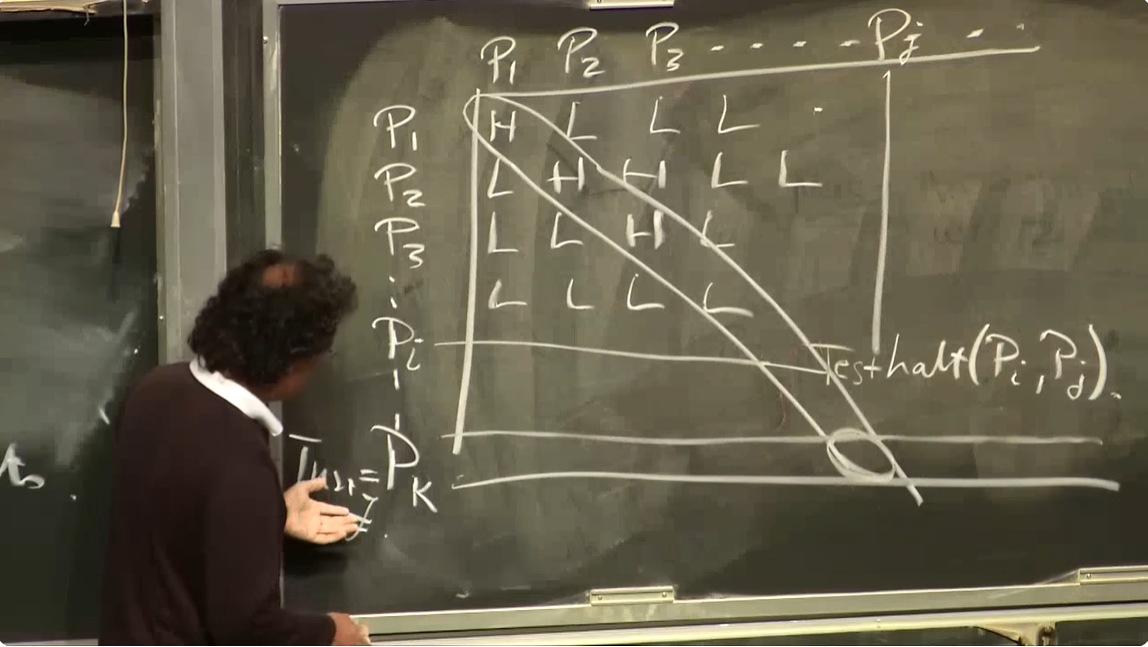 P₁ P₂ P₃ · · · · P_j · ·
P₁ H L L L ·
P₂ L H H L L
P₃ L L H L
⋮ L L L L
P_i Testhalt(P_i, P_j).
= P_K